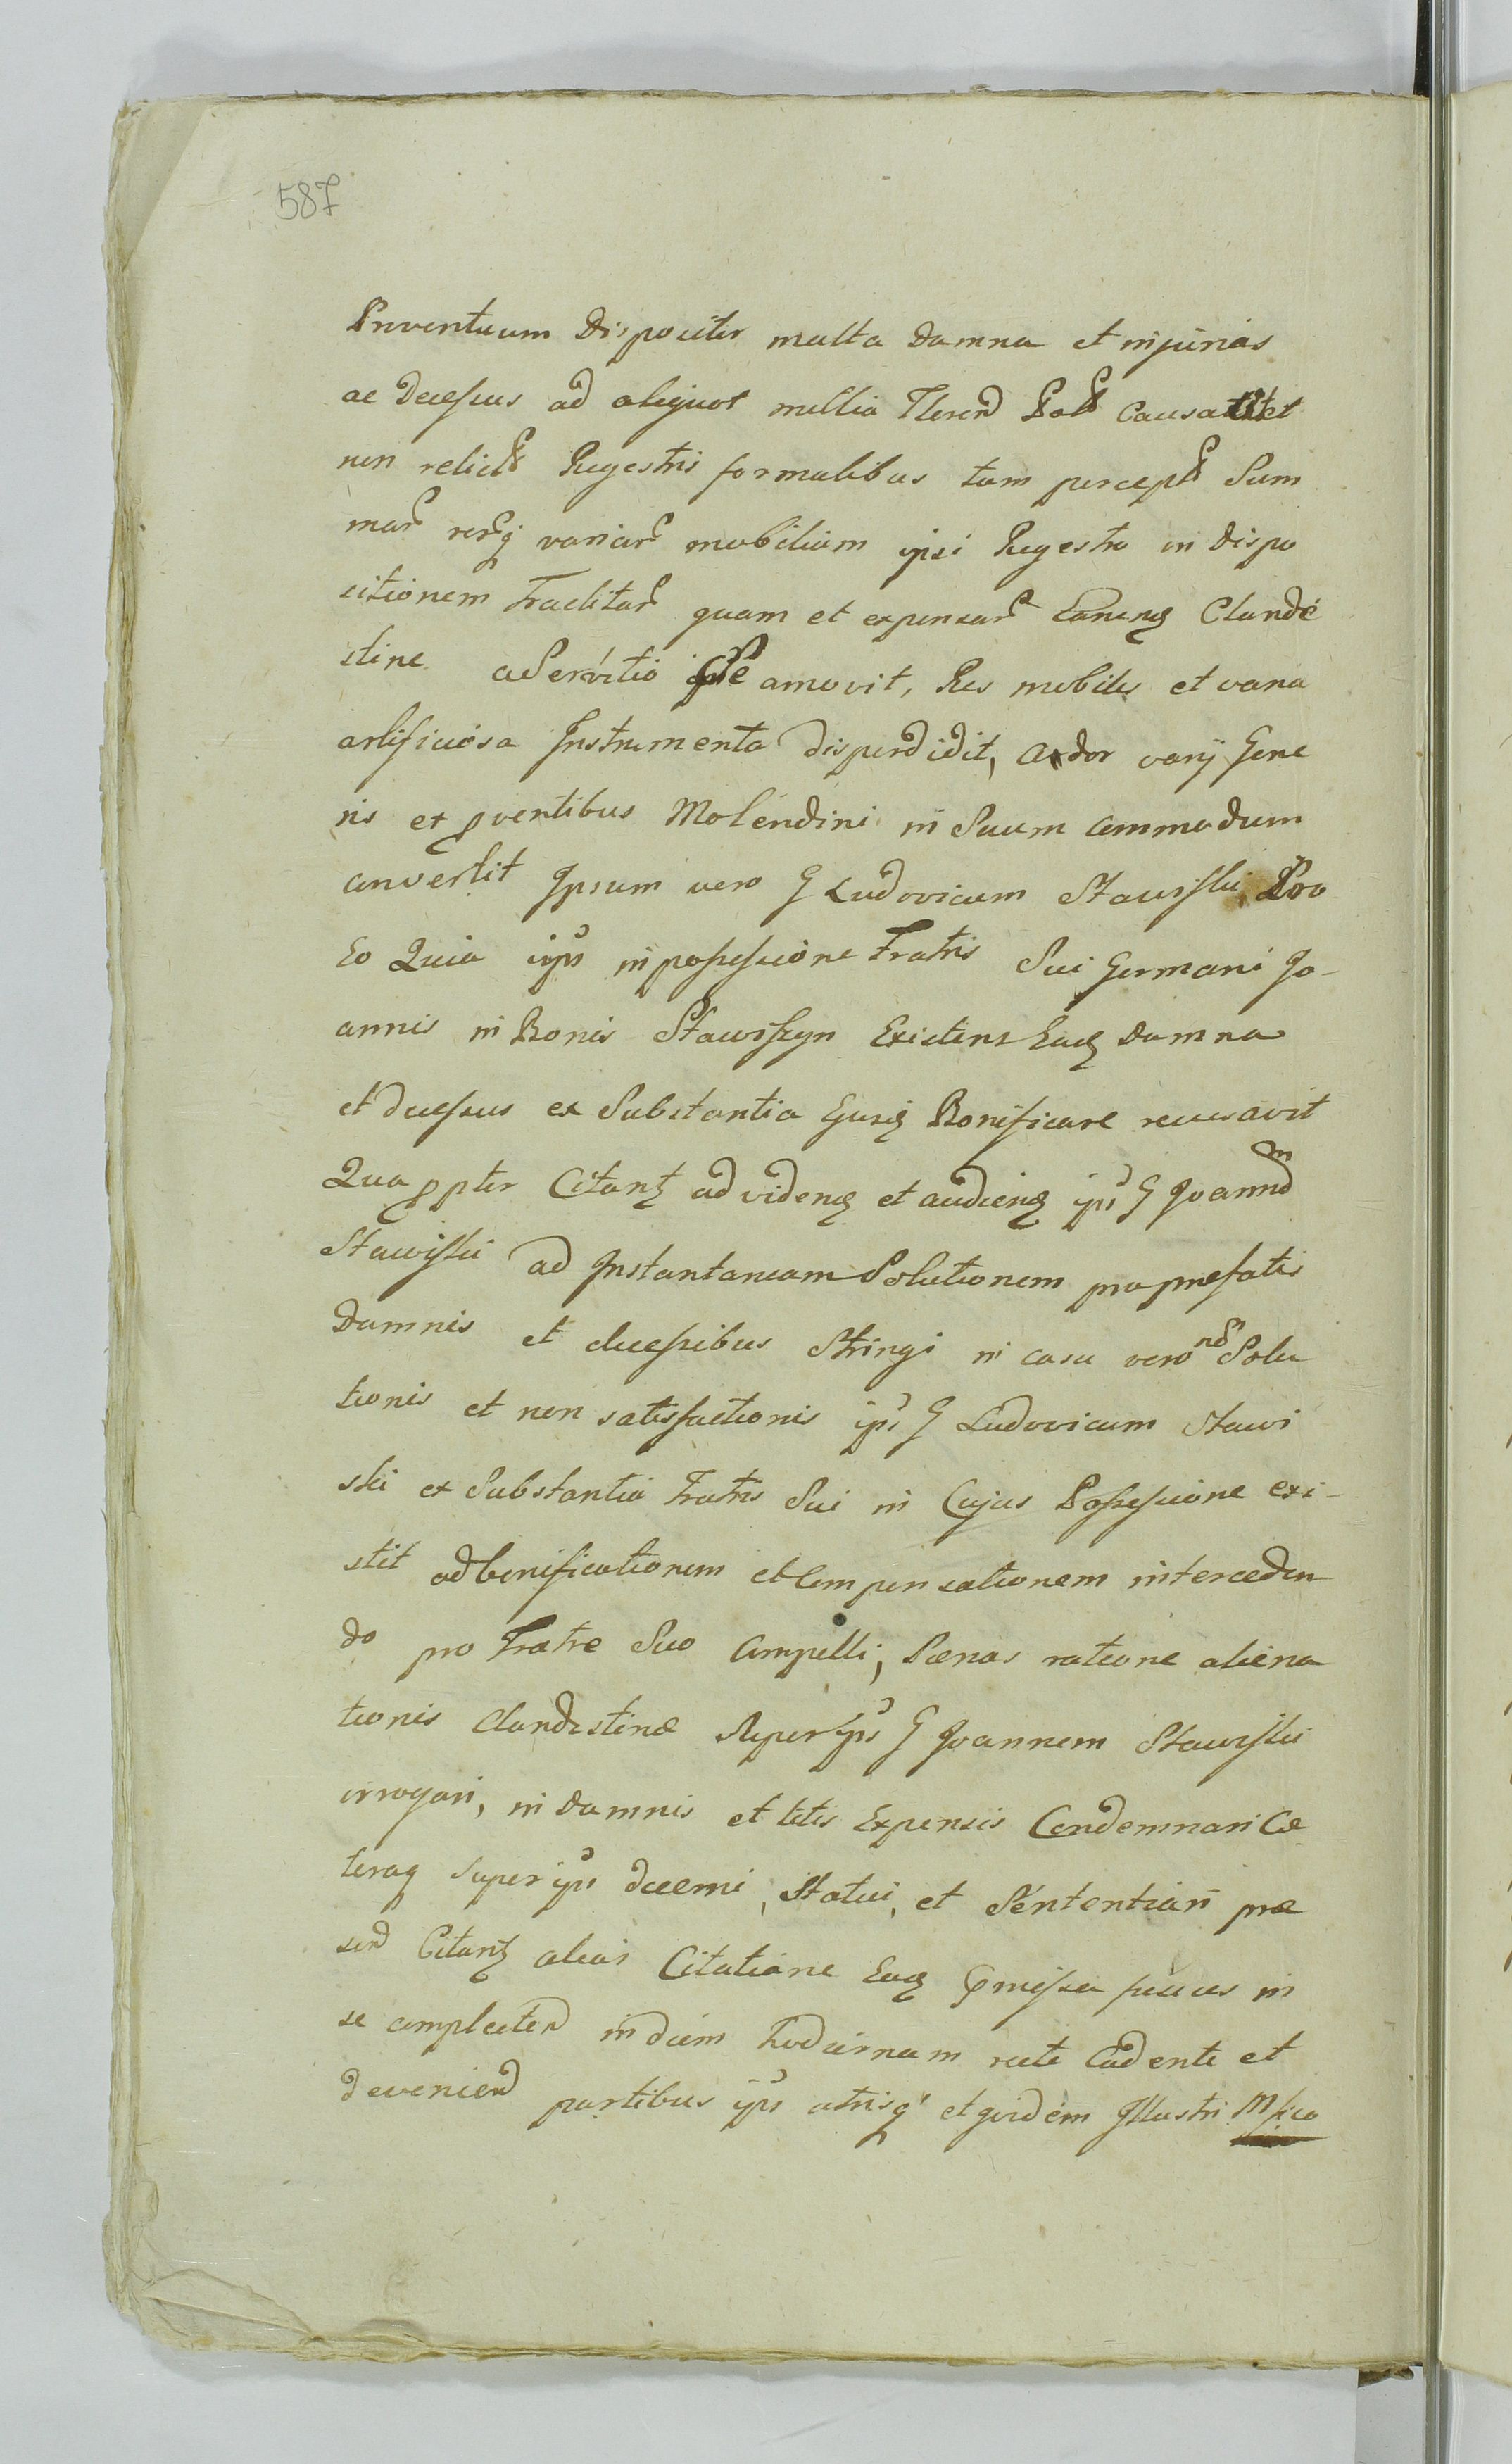 587
Proventuum Dispositor multa Damna et injurias
ac Decessus ad aliquot millia Floren Pol causavit et
non relict Regestris formalibus tam percept Sum
mar rerq variar mobilium ipsi Regestro in dispo
sitionem Traditar quam et expensar Eanq Clande
stine a Servitio amovit, Res mobiles et varia
artificiosa Instrumenta disperdidit, ardor varij Gene
ris ex pventibus Molendini in Suum commodum
convertit Ipsum vero G Ludovicum Stawiski, Pro
Eo Quia ips in possessione Fratris Sui Germani Jo-
annis in Bonis Stawiszyn Existens Eaq damna
et decessus ex Substantia Ejusq Bonificare recusavit
Qua ppter Citant ad videnq et audienq ips G Joannem
Stawiski ad Instantaneam Solutionem pro prefatis
Damnis et decessibus Stringi in casu vero non Solu
tionis et non satisfactionis ips G Ludovicum Stawi
ski ex Substantia Fratris Sui in Cujus Possessione exi-
stit ad bonificationem et Compensationem interceden
do pro Fratre Suo Compelli, Pænas ratione aliena
tionis Clandestinæ Super ips G Joannem Stawiski
irrogari, in damnis et litis Expensis Condemnari Cæ
teraq Super ips decerni, Statui, et Sententiari præ
sen Citant alias Citatione Eaq pmissa fusius in
se complecten in diem hodiernam recte Cadente et
devenien partibus ips utrisq et quidem Illustri Mfico